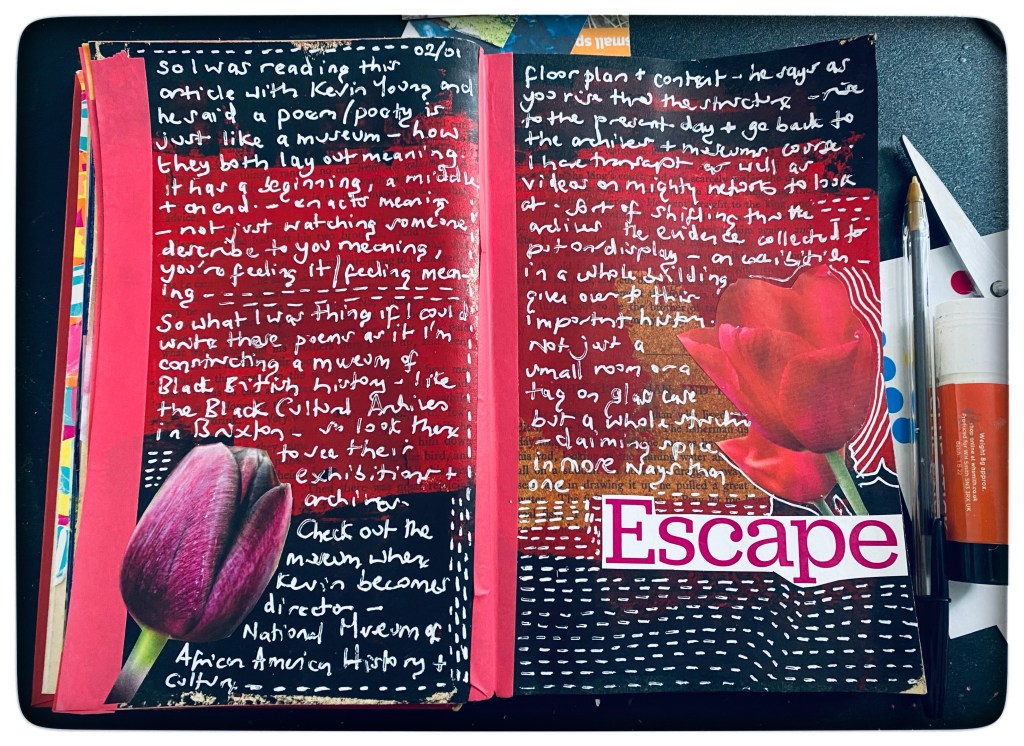 02/01
So I was reading this
article with Kevin Young and
he said a poem/poety is
just like a museum - how
they both lay out meaning.
it has a beginning, a middle
+ an end. - enacts meaning
- not just watching someone
describe to you meaning,
you're feeling it/feeling mean-
ing
So what I was thing if I could
write these poems as if I'm
constructing a museum of
Black British history - like
the Black Cultural Archives
in Brixton - so look there
to see their
exhibitions +
archives.
Check out the
museum where
Kevin becomes
director -
National Museum of
African America History +
Culture
floor plan + content - he says as
you rise thru the structure - rise
to the present day + go back to
the archives + museums course.
I have transcript as well as
videos on mighty networks to look
at - sort of shifting thru the
archives the evidence collected to
put on display - an exhibition -
in a whole building
given over to this
important history.
Not just a
small room or a
tag on glass case
but a whole structure
- claiming space
in more ways than
one
Escape
small sp
Weight 8g approx.